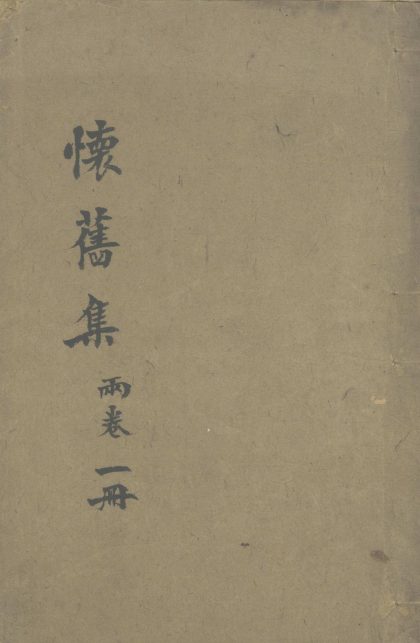 懷舊集
兩卷
一冊